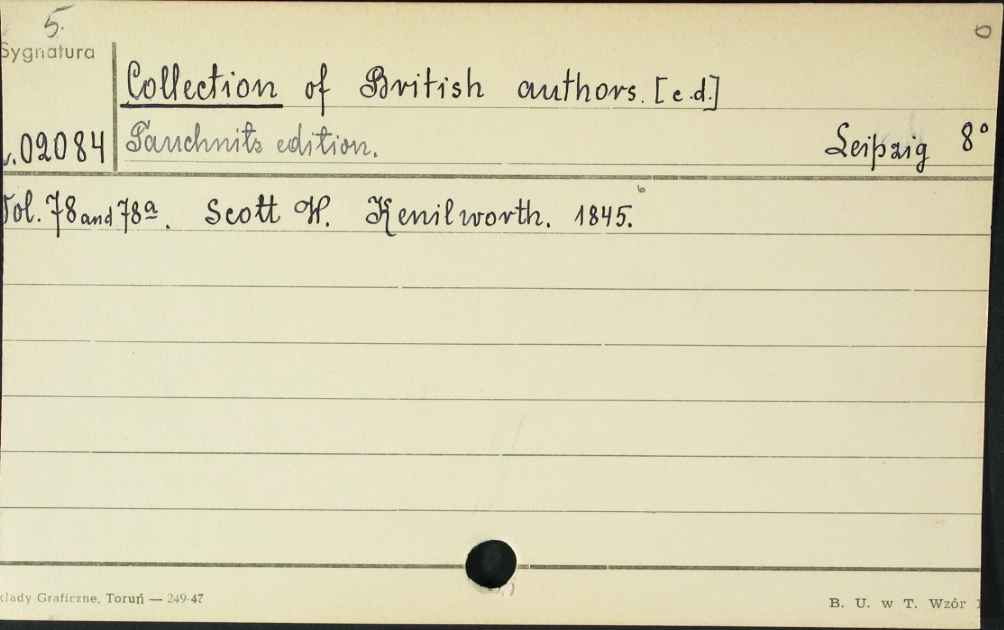 5.
Sygnatura
Collection of British authors. [c.d.]
02084
Tauchnitz edition. Leipzig 8°
Vol. 78 and 78a. Scott W. Kenilworth. 1845.
Graficzne, Toruń — 249-47
B. U. w T. Wzór